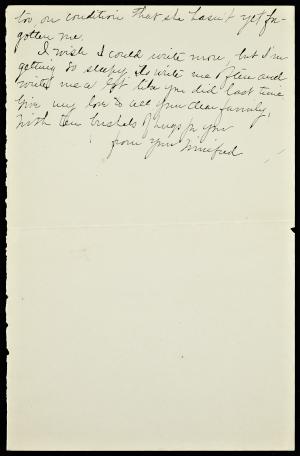 too on condition that she hasn't yet for-
gotten me.
I wish I could write more, but I'm
getting so sleepy. Do write me often and
write me a lot like you did last time
Give my love to all your dear family,
With ten bushels of hugs for you
from your Winifred